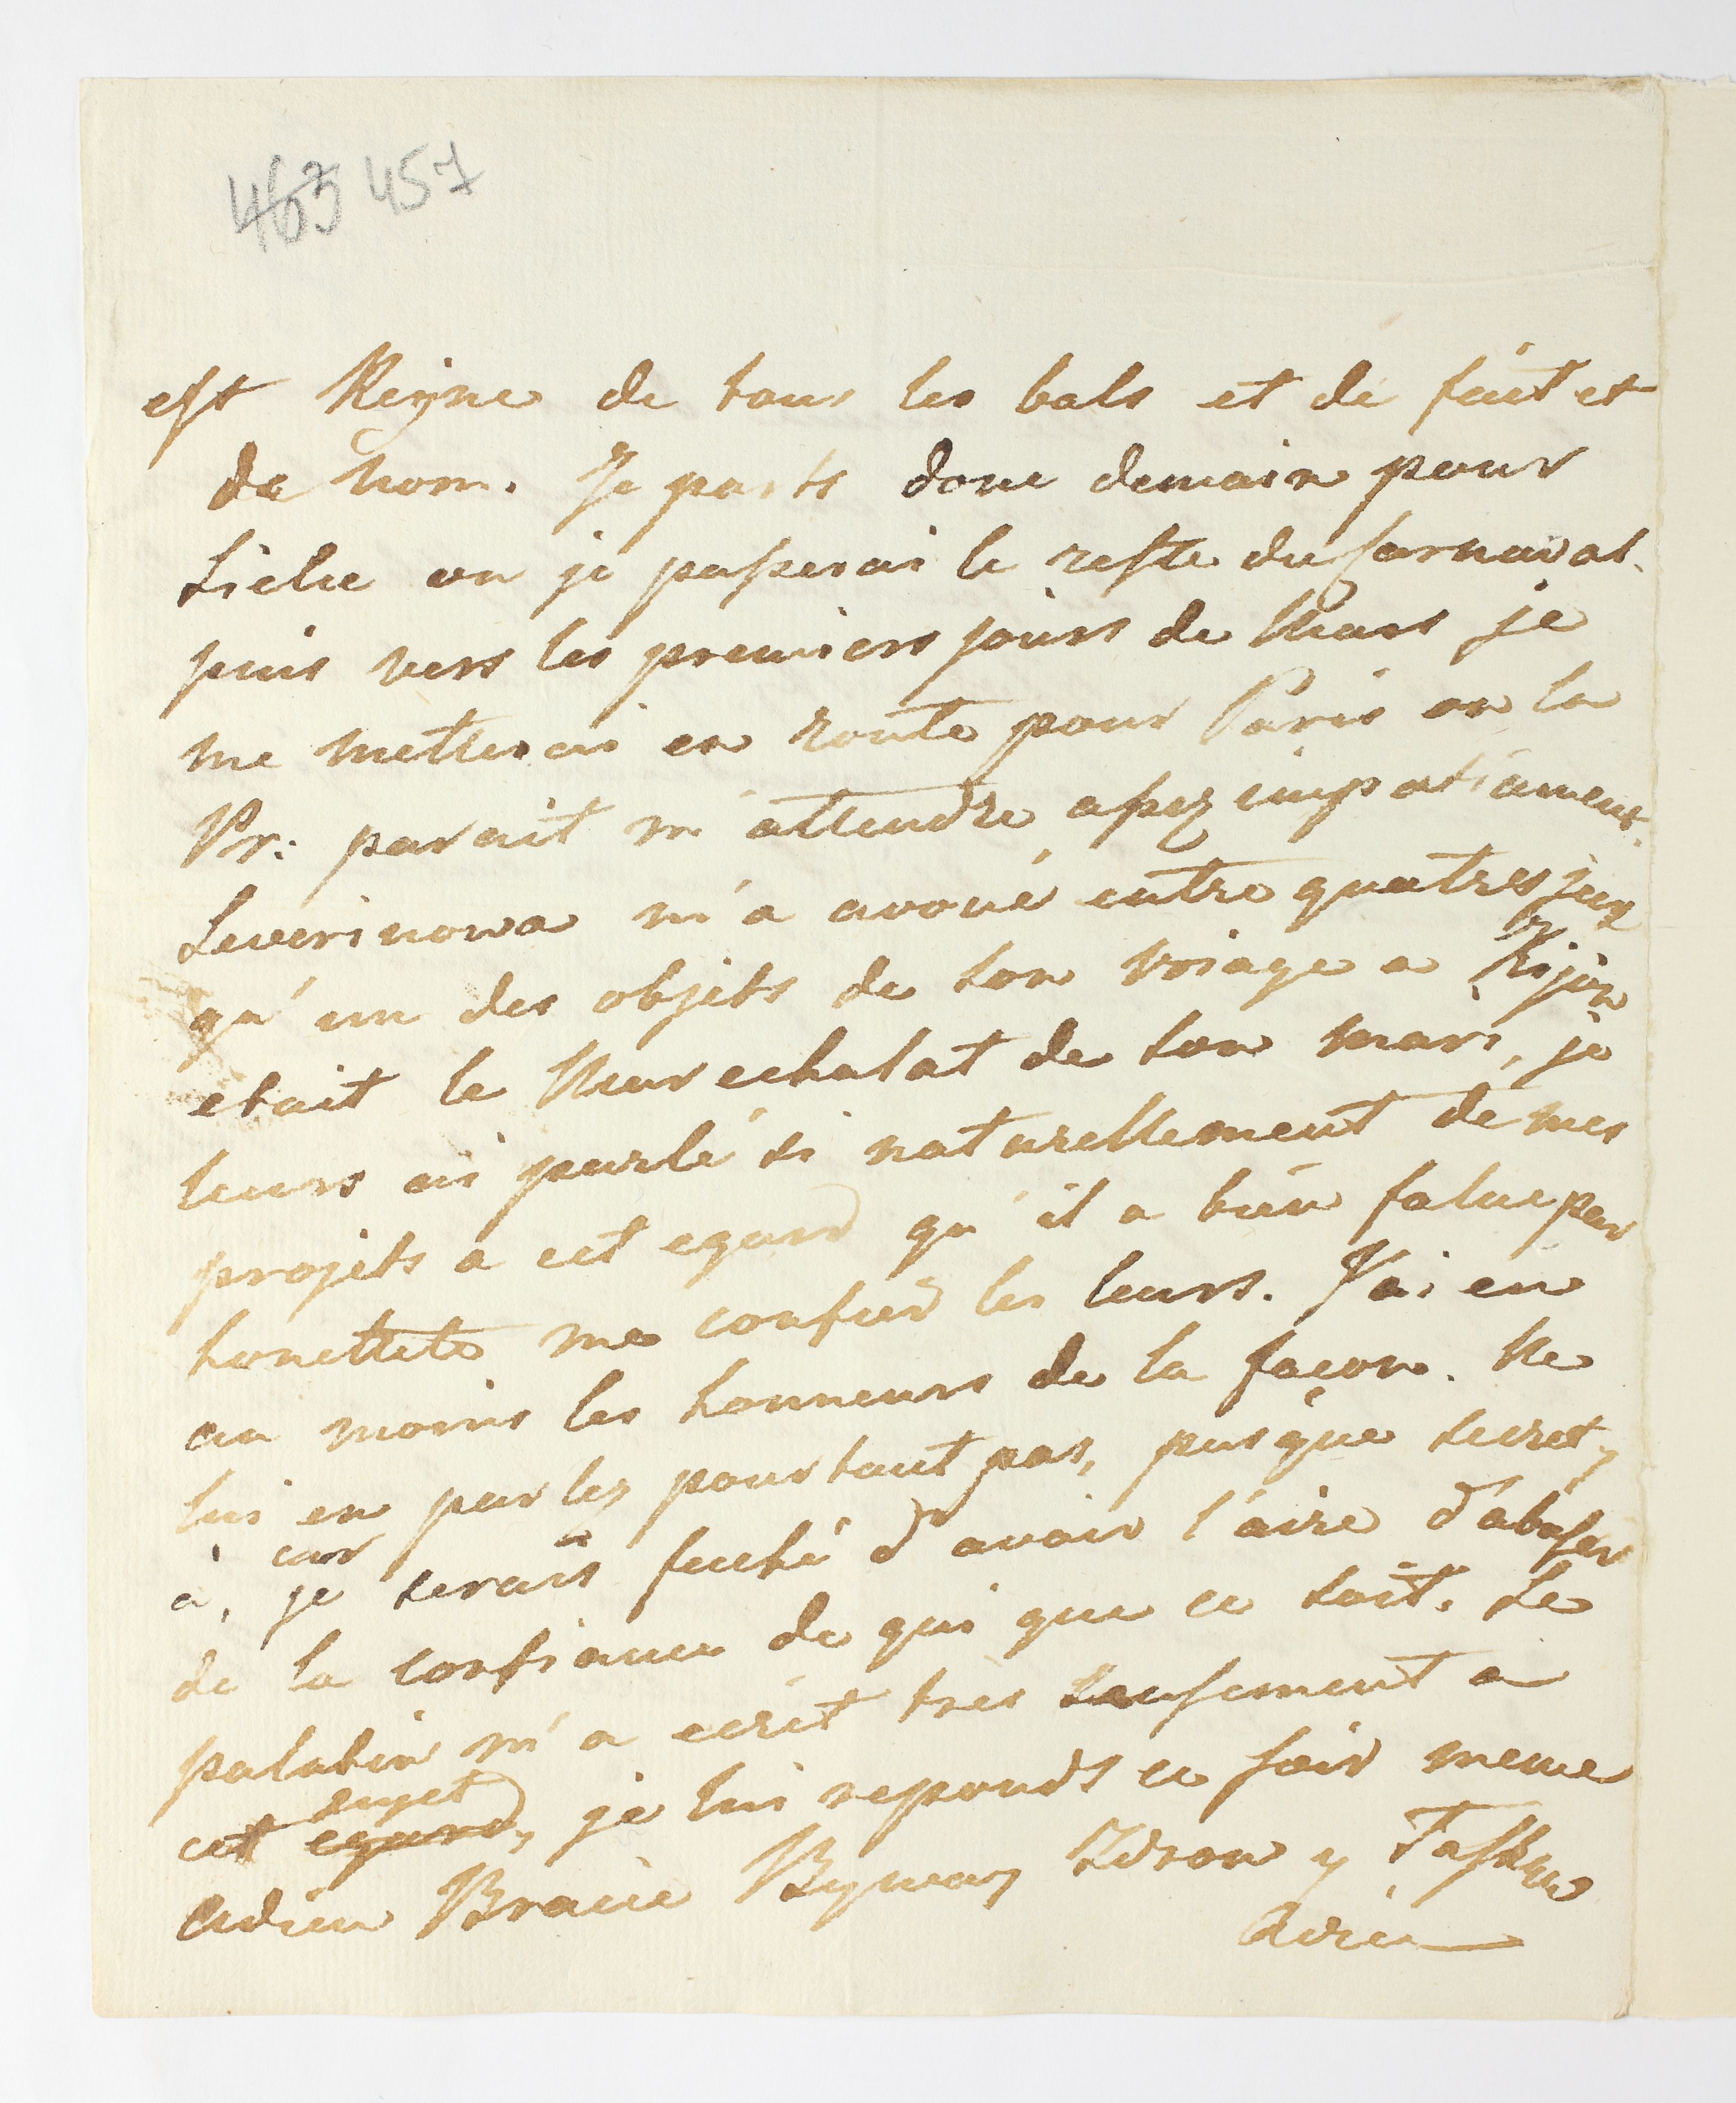 463 457
est Reyne de tous les bals et de fait et
de nom. Je parts donc demain pour
Siehe ou je passerai le reste du Carnaval.
puis vers les premiers jours de Mars je
me metterai en route pour Paris ou la
Pr: parait m'attendre assez impatiament.
Severinowa m'a avoué entre quatres jeux
qu'un des objets de son voiage a Kijow
etait le Marechalat de son mari, je
leurs ai parlé si naturellement de mes
projets a cet egard qu'il a bien falue par
honettete me confier les leurs. J'ai eu
au moins les honneurs de la façon. Ne
lui en parlez pourtant pas, pusque secret y
a, car je serais faché d'avoir l'aire d'abuser
de la confiance de qui que ce soit. Le
palatin m'a ecrit tres sensement a
cet egard, sujet je lui reponds ce soir meme
adieu Bracie Bywaj zdrow y Łaskaw
Adieu